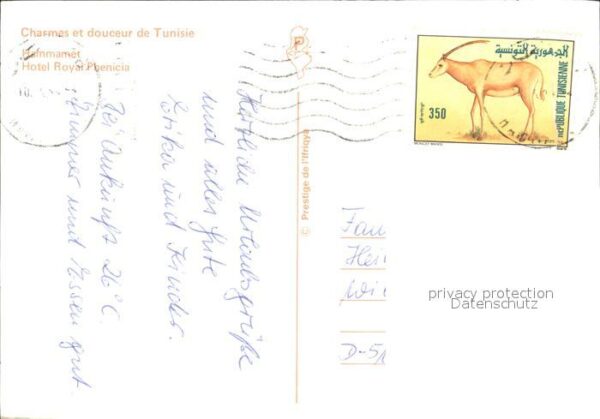 Charmes et douceur de Tunisie
Hammamet
Hotel Royal Phenicia
Herzliche Urlaubsgrüße
und alles Gute
Erika und Kinder.
Bei Ankunft 26°C.
Zimmer und Essen gut.
© Prestige de l'Ifriqiya
الجمهورية التونسية
350
REPUBLIQUE TUNISIENNE
Fam
Hei
Wi
D-51
privacy protection
Datenschutz